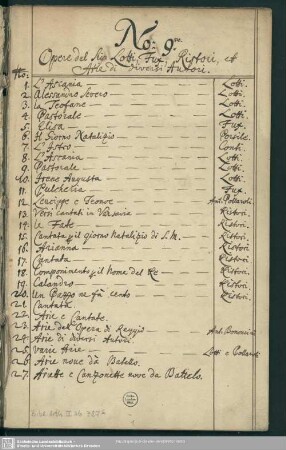 No: 9.
Opere del Sig. Lotti, Fux, Ristori, et
Arie di Diversi Autori.
No:
1. L'Ascanio — Lotti.
2. Alessandro Severo — Lotti.
3. la Teofane — Lotti.
4. Pastorale — Lotti.
5. Elisa — Fux.
6. Il Giorno Natalizio —
7. L'Istro — Conti.
8. L'Ascanio — Lotti.
9. Pastorale — Lotti.
10. Irene Augusta — Lotti.
11. Pulcheria — Fux.
12. Leucippe e Teonoe — Ant. Pollaroli.
13. Versi cantati in Varsavia — Ristori.
14. le Fate — Ristori.
15. Cantata p il giorno Natalizio di S. M. — Ristori.
16. Arianna — Ristori
17. Cantata — Ristori.
18. Componimento p il Nome del Re — Ristori.
19. Calandro — Ristori.
20. Un Pazzo ne fà cento — Ristori.
21. Cantata
22. Arie e Cantate.
23. Arie dell' Opera di Reggio — Ant. Bononcini
24. Arie di diversi Autori.
25. Varie Arie — Lotti e Pollaroli
26. Arie nove da Batello.
27. Ariette e Canzonette nove da Battelo.